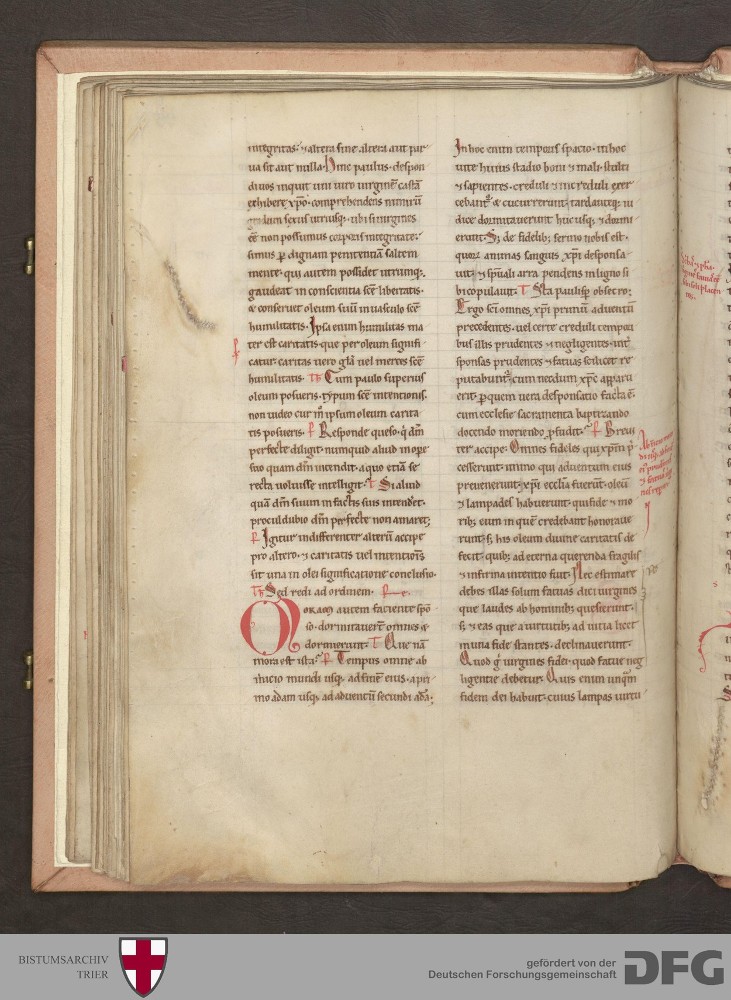 integritas. ⁊ altera sine altera aut par
ua sit aut nulla. Hinc paulus. despon
di uos inquit uni uiro uirginē castā
exhibere xp̄o. comprehendens nimirū
sexus utriusq;. ubi si uirgines
ēē non possumus corporis integritate;
simus p̱ dignam penitentiā saltem
mente. qui autem possidet utrumq;.
gaudeat in conscientia scē libertatis.
⁊ conseruet oleum suū in uasculo scē
humilitatis. Ipsa enim humilitas ma
ter est caritatis. que per oleum signifi
catur. caritas uero gl̄a uel merces scē
humilitatis. Th Cum paulo superius
oleum posueris. typum scē intentionis.
non uideo cur m̊ ipsum oleum carita
tis posueris. P Responde queso. q̇ dm̄
perfecte diligit. numquid aliud in ope
suo quam dm̄ intendit. a quo etiā se
recta uoluisse intelligit. T Si aliud
quā dm̄ suum in factis suis intenderet.
proculdubio dm̄ perfecte non amaret;
P Igitur indifferenter alterū accipe
pro altero. ⁊ caritatis uel intentionis
sit una in olei significatione conclusio.
Th Sed redi ad ordinem. P
Moram autem faciente spō
so. dormitauerūt omnes ⁊
dormierunt. T Que nā
mora est ista. P Tempus omne ab
inicio mundi usq; ad finē eius. a pri
mo adam usq; ad aduentū secundi adā.
In hoc enim temporis spacio. in hoc
uite huius stadio boni ⁊ mali. stulti
⁊ sapientes. creduli ⁊ increduli exer
cebant᷑ ⁊ cucurrerunt. tardanteq; iu
dice dormitauerunt huc usq; ⁊ dormi
erunt. Sꝫ de fidelib; sermo nobis est.
quorū animas sanguis xp̄i desponsa
uit. ⁊ sp̄uali arra pendens in ligno si
bi copulauit. T Sta paulisꝑ obsecro;
Ergo scī omnes. xp̄i primū aduentū
precedentes. uel certe creduli tempori
bus illis prudentes ⁊ negligentes. int᷑
sponsas prudentes ⁊ fatuas scilicet re
putabunt᷑. cum necdum xp̄c apparu
erit. ꝑ quem uera desponsatio facta ē.
cum ecclesie sacramenta baptizando
docendo moriendo ꝓfudit. P Breui
ter accipe. Omnes fideles qui xp̄m p̄
cesserunt. immo qui aduentum eius
preuenerunt. xp̄i eccl̄ia fuerūt. oleū
⁊ lampades habuerunt. qui fide ⁊ mo
rib; eum in quē credebant honoraue
runt. sꝫ his oleum diuine caritatis de
fecit. quib; ad eterna querenda fragilis
⁊ infirma intentio fuit. Nec estimare
debes illas solum fatuas dici uirgines
que laudes ab hominib; quesierunt.
sꝫ ⁊ eas que a uirtutib; ad uitia licet
in una fide stantes. declinauerunt.
Quod g̊ uirgines fidei. quod fatue neg
ligentie debetur. Quis enim unqm̄
fidem dei habuit. cuius lampas uirtu
BISTUMSARCHIV
TRIER
gefördert von der
Deutschen Forschungsgemeinschaft
DFG